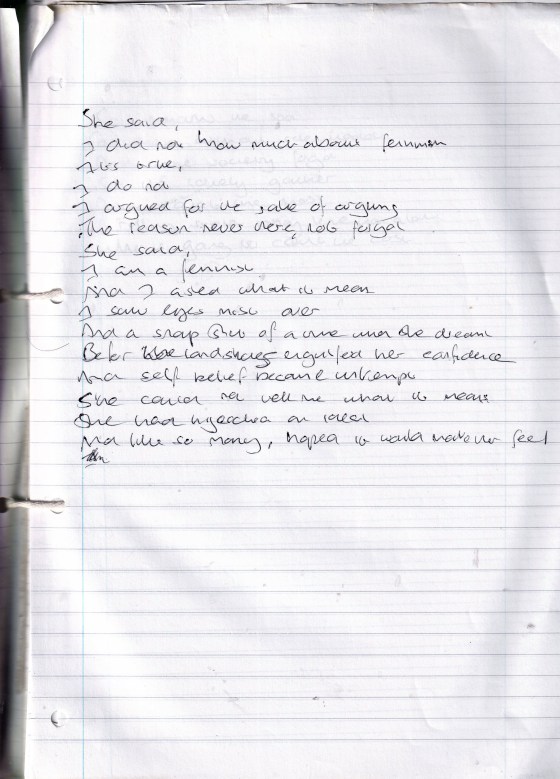 She said,
I did not know much about feminism
Its true,
I do not
I argued for the sake of arguing
The reason never here, nor forgot
She said,
I am a feminist
And I asked what it mean
I saw eyes mist over
And a snap shot of a time when the dream
Befor landslides engulfed her confidence
And self belief became unkempt
She could not tell me what it means
She had hijacked an ideal
And like so many, hoped it would make her feel